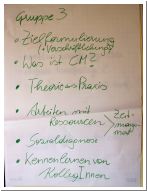 Gruppe 3
• Zielformulierung
• Was ist CM?
• Theorie - Praxis
• Arbeiten mit
Ressourcen
Zeit-
manage-
ment
• Sozialdiagnose
• Kennenlernen von
KollegInnen